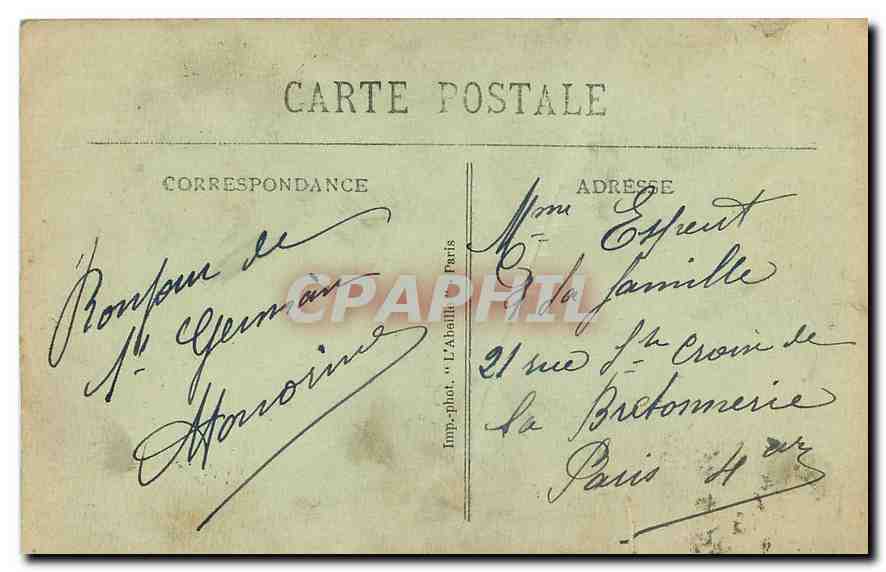 CARTE POSTALE
CORRESPONDANCE
Bonjour de
St Germain
Honorine
Imp.-phot. "L'Abeille", Paris
ADRESSE
Mme Esprit
& la famille
21 rue Ste Croix de
la Bretonnerie
Paris 4me
CPAPHIL